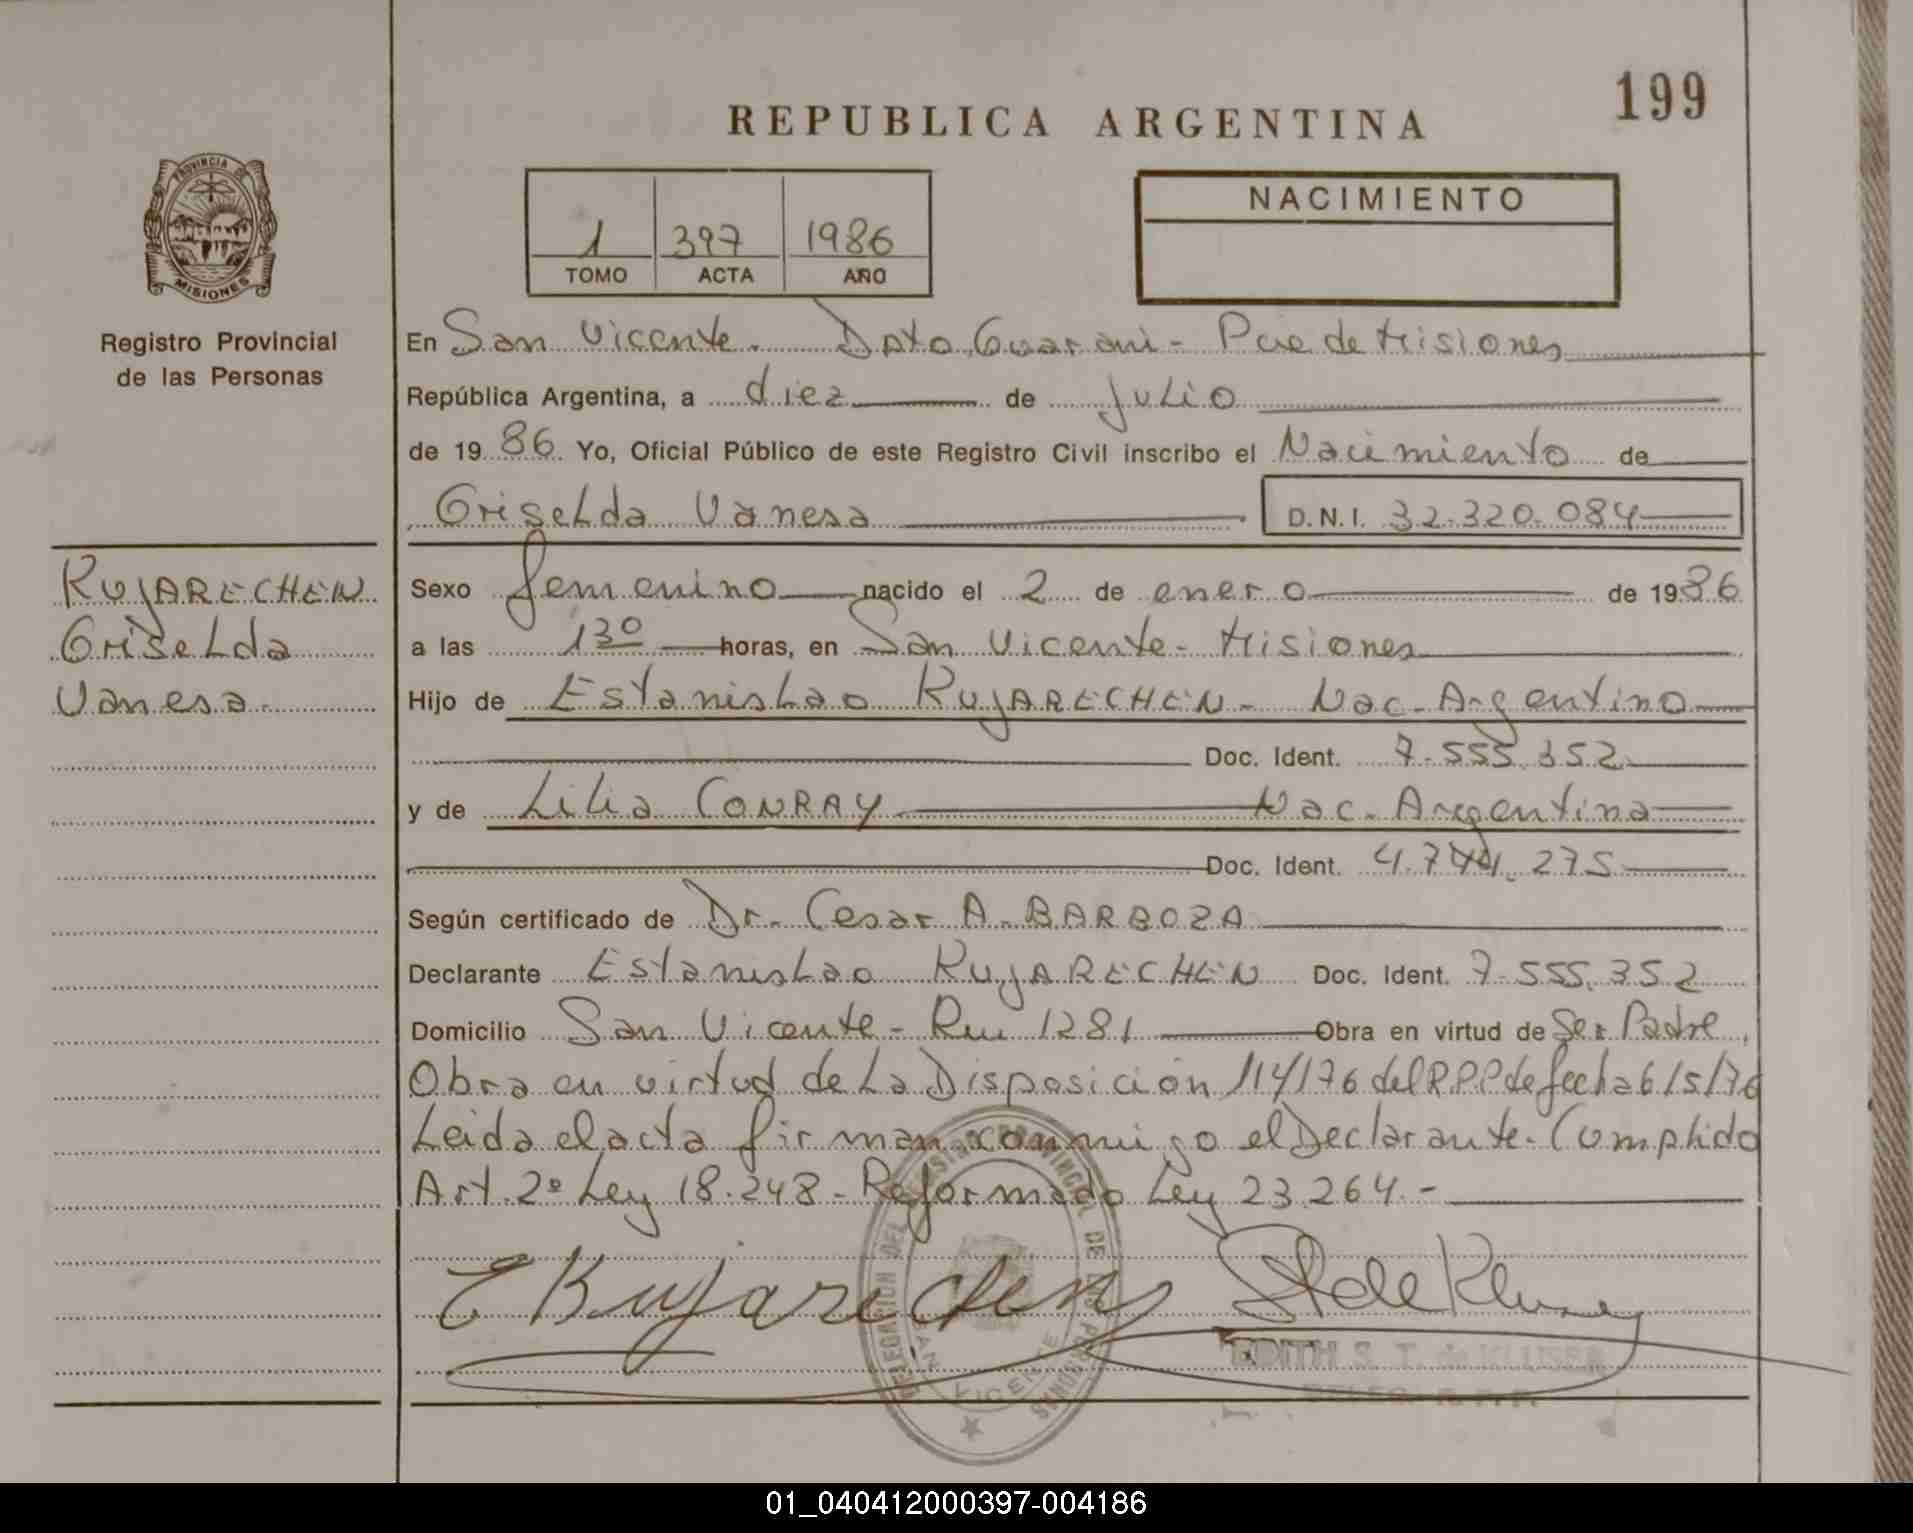 199
REPUBLICA ARGENTINA
PROVINCIA DE
MISIONES
Registro Provincial
de las Personas
1 397 1986
TOMO ACTA AÑO
NACIMIENTO
En San Vicente. Dpto Guarani - Pcie de Misiones
República Argentina, a diez de julio
de 19 86 Yo, Oficial Público de este Registro Civil inscribo el Nacimiento de
Griselda Vanesa D.N.I. 32.320.084
KUJARECHEN
Griselda
Vanesa
Sexo femenino nacido el 2 de enero de 1986
a las 13º horas, en San Vicente - Misiones
Hijo de Estanislao KUJARECHEN - Nac. Argentino
Doc. Ident. 7.555.352
y de Lilia CONRAY Nac. Argentina
Doc. Ident. 4.744.275
Según certificado de Dr. Cesar A. BARBOZA
Declarante Estanislao KUJARECHEN Doc. Ident. 7.555.352
Domicilio San Vicente - Ru 1281 Obra en virtud de Ser Padre
Obra en virtud de La Disposición 114/76 del R.P.P de fecha 6/5/76
Leida el acta firman conmigo el Declarante. Cumplido
Art. 2º Ley 18.248 - Reformado Ley 23.264.-
DELEGACION DEL REGISTRO PROVINCIAL DE LAS PERSONAS
SAN VICENTE
EDITH S. T. de KLUSER
01_040412000397-004186